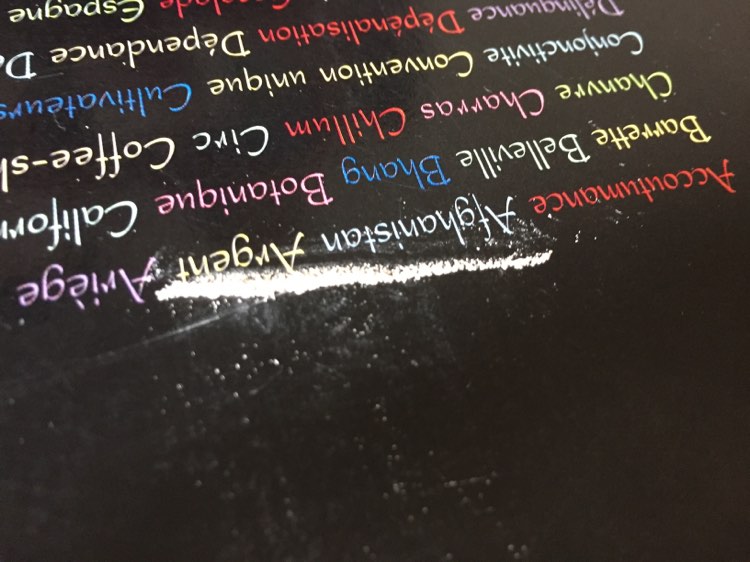 Accoutumance Afghanistan Argent Ariège
Barrette Belleville Bhang Botanique Californ
Chanvre Charras Chillum Circ Coffee-sh
Conjonctivite Convention unique Cultivateurs
Délinquance Dépénalisation Dépendance
Escalade Espagne